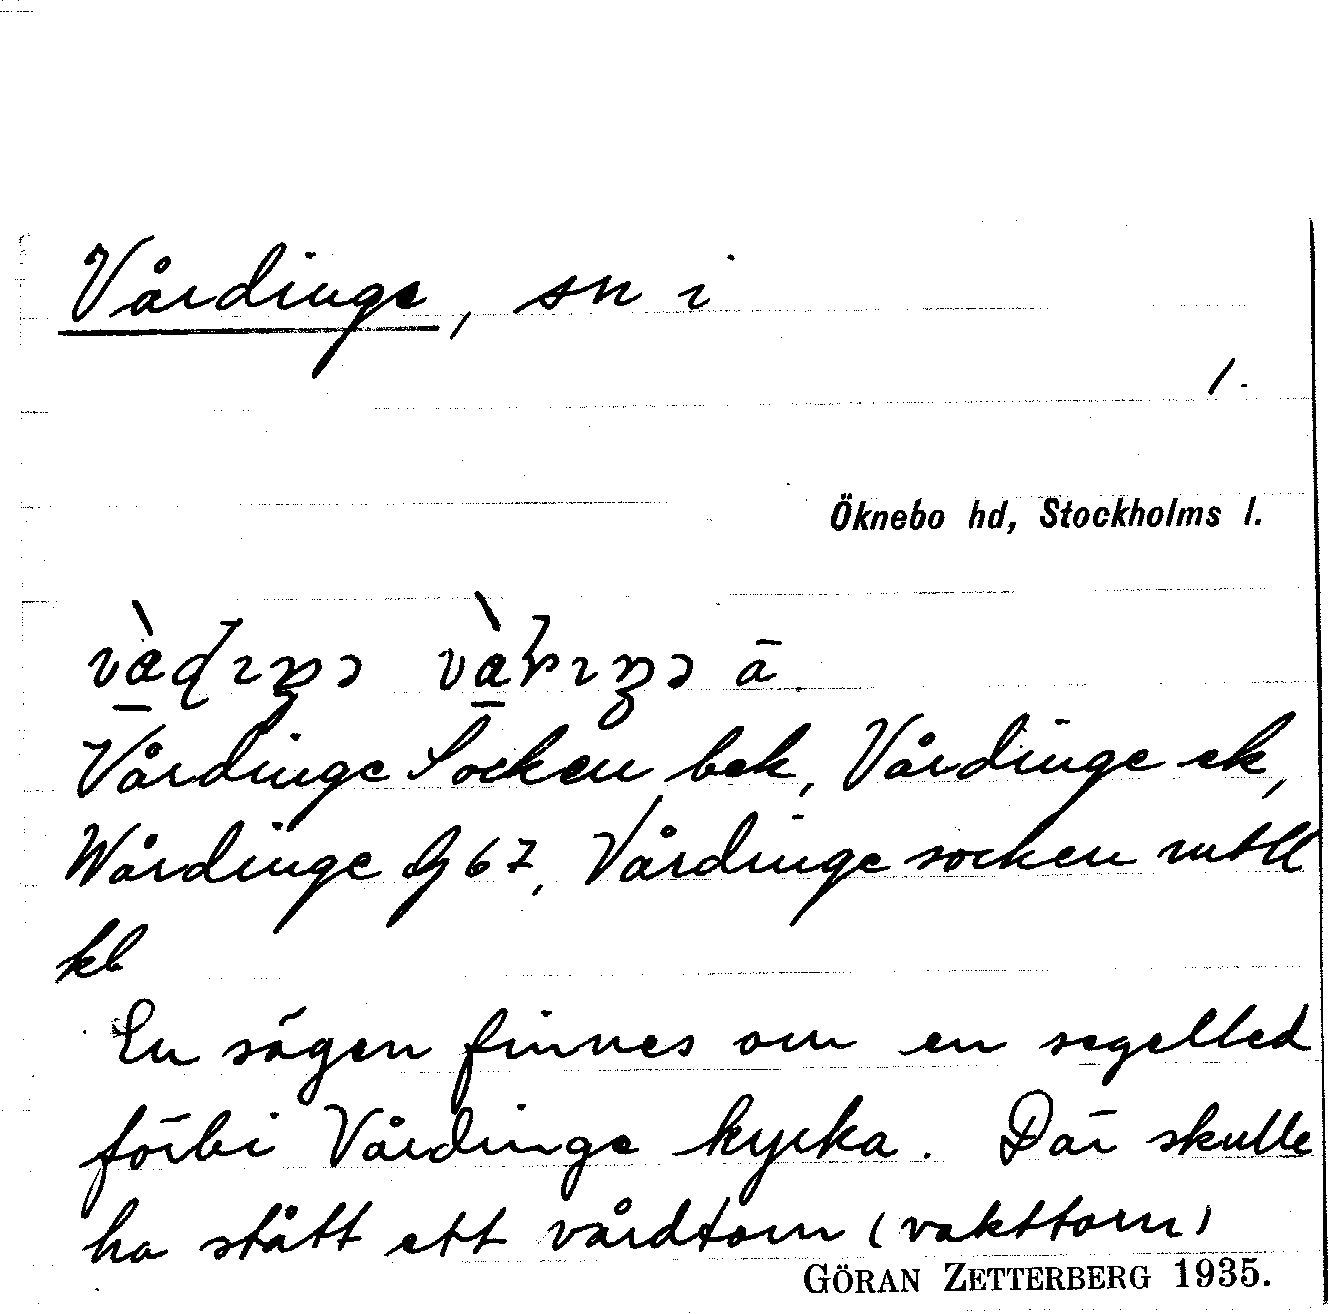 Vårdinge, sn i
1.
Öknebo hd, Stockholms l.
ā
Vårdinge Socken bek, Vårdinge ek,
Wårdinge Gg 67, Vårdinge socken mtll
kb
En sägen finnes om en segelled
förbi Vårdinge kyrka. Där skulle
ha stått ett vårdtorn (vakttorn)
GÖRAN ZETTERBERG 1935.